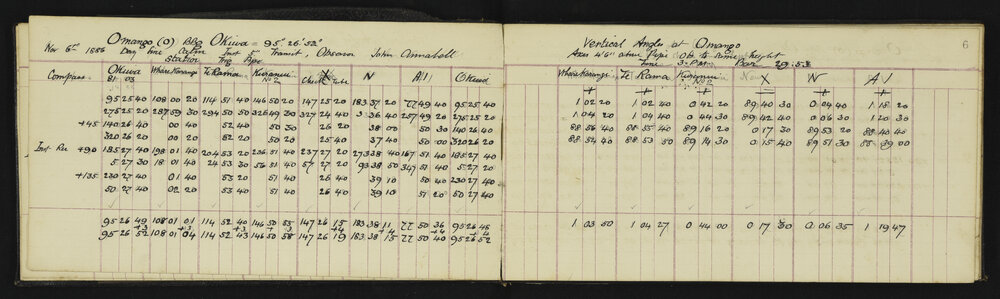 Omango (O) Brg Okiwa = 95° 26' 52"
Nov 6th 1886 Day Fine Calm Inst 5" Transit, Observer John Annabell
Station Trig Pipe
Compass Okiwa Whare Karanga Te Rama Kuramui No 2 X Check Tube N A1 Okiwa
81.05
95 25 40 108 00 20 114 51 40 146 50 20 147 25 20 183 37 20 77 49 40 95 25 40
275 25 20 287 59 30 294 50 50 326 49 30 327 24 40 3 36 40 257 49 20 275 25 20
+45 140 26 40 00 40 52 40 50 30 26 20 38 00 50 30 140 26 40
320 26 20 00 40 52 20 50 20 25 40 37 40 50 00 320 26 20
Inst Rev +90 185 27 40 198 01 40 204 53 20 236 51 40 237 27 20 273 38 40 167 51 40 185 27 40
5 27 30 18 01 40 24 53 30 56 51 40 57 27 20 93 38 50 347 51 40 5 27 20
+135 230 27 40 01 40 53 20 51 40 26 40 39 10 50 40 230 27 40
50 27 40 02 20 53 40 51 40 26 40 39 10 51 20 50 27 40
95 26 49 108 01 01 114 52 40 146 50 55 147 26 15 183 38 11 77 50 36 95 26 48
+3 +3 +3 +3 +4 +4 +4 +4
95 26 52 108 01 04 114 52 43 146 50 58 147 26 19 183 38 15 77 50 40 95 26 52
6
Vertical Angles at Omango
Axis 4'6" above Pipe Obs to Same height
Time 3 P.m. Bar 29.58
Whare Karanga Te Rama Kuramui No 2 X N A1
+ + + + + +
1 02 20 1 02 40 0 42 20 89 40 30 0 04 40 1 18 20
1 04 20 1 04 40 0 44 30 89 42 40 0 06 30 1 20 30
88 56 40 88 55 40 89 16 20 0 17 30 89 53 20 88 40 40
88 54 40 88 53 50 89 14 30 0 15 40 89 51 30 88 39 00
1 03 50 1 04 27 0 44 00 0 17 30 0 06 35 1 19 47